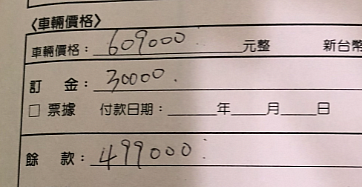 〈車輛價格〉
車輛價格：609000. 元整 新台幣
訂 金：30000.
□ 票據 付款日期：____年____月____日
餘 款：499000.